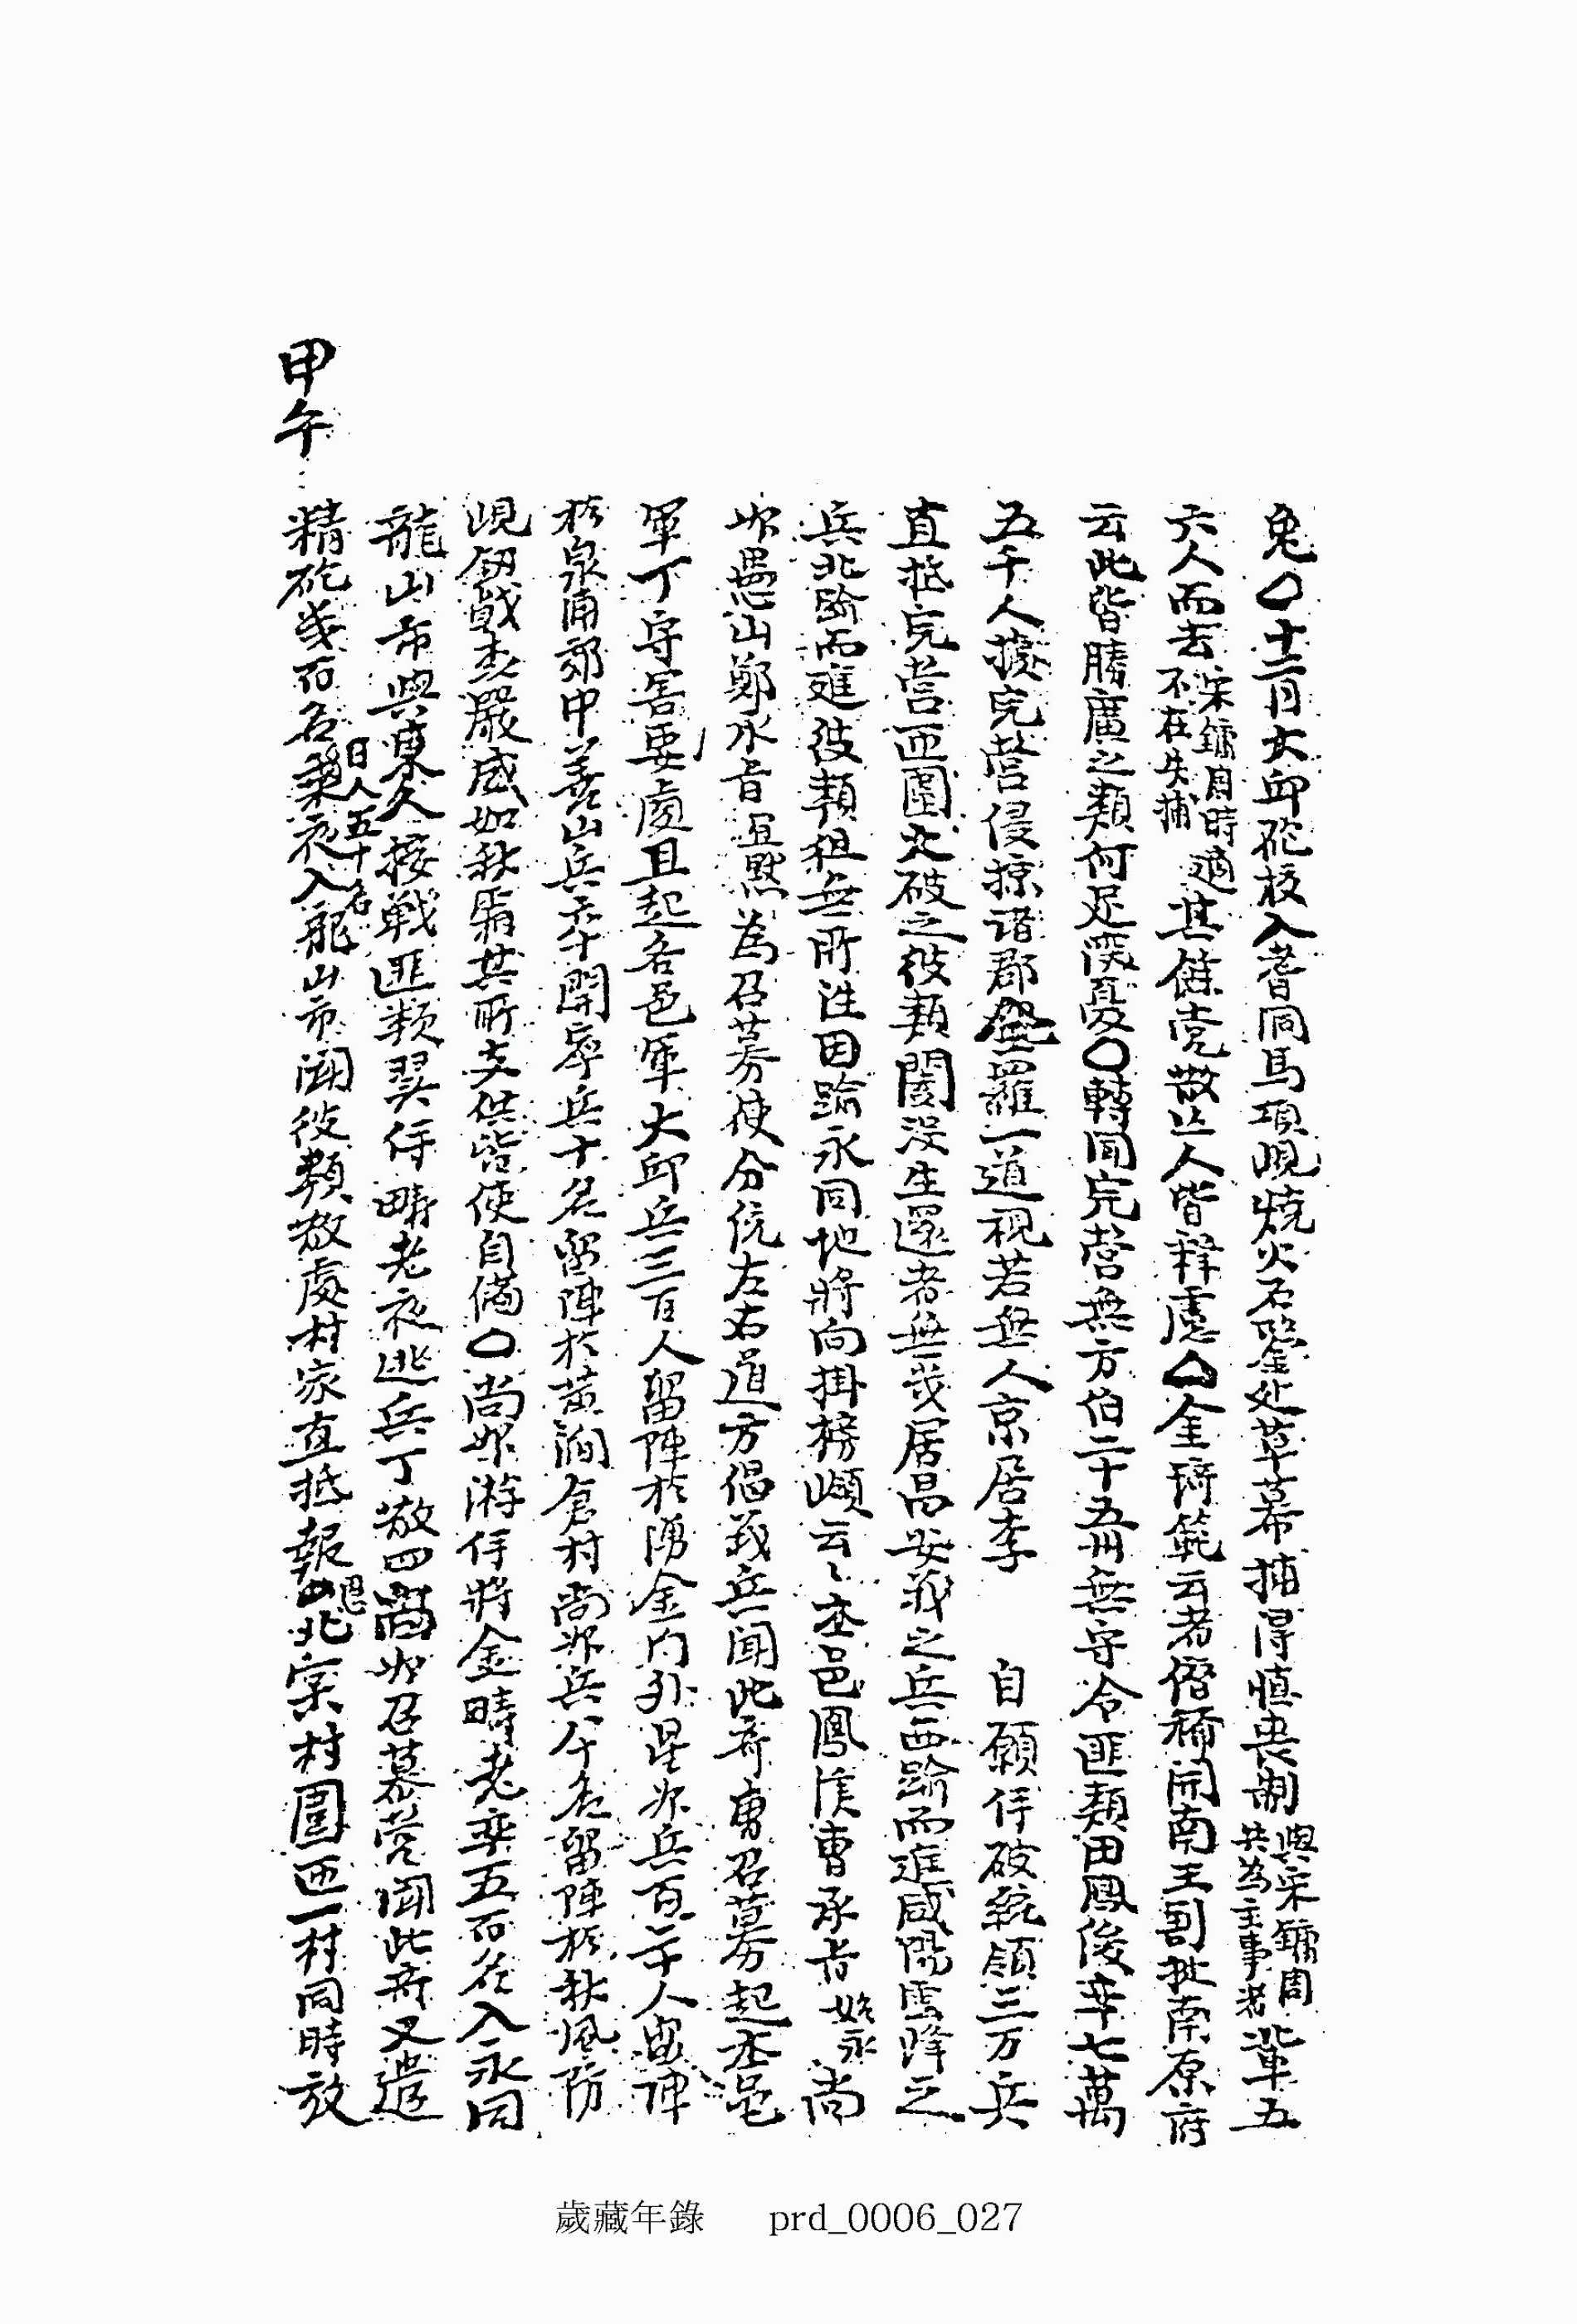 兔○十二月大邱砲校入耆洞馬項峴燒火石 处草幕捕得愼喪制與宋鏞周共為主事者輩五
六人而去宋鏞周時適不在失捕其餘党散亡人皆釋慮○金琦範云者僭稱開南王割拠南原府
云此皆勝廣之類何足深憂○轉聞完營無方伯二十五州無守令匪類田鳳俊率七萬
五千人據完營侵掠諸郡 羅一道視若無人京居李 自願俘破統領三万兵
直抵完營匝圍大破之彼類 沒生還者無幾居昌安義之兵西踰而進咸陽雲峰之
兵北踰而進彼類狙無所往因踰永同地將向掛榜嶺云〻本邑鳳溪曺承旨始永尚
州愚山鄭承旨宜默為召募使分統左右道方倡義兵聞此奇曺召募起本邑
軍丁守害要處且起各邑軍大邱兵三百人留陣於湧金門外星州兵百二十人留陣
於泉浦郊中善山兵 十開寧兵十名留陣於黃澗倉村尚州兵八十名留陣於秋風防
峴釼戟森嚴威如秋霜其所支供皆使自備○尚州游俘將金晴老率五百名入永同
龍山市與東人接戰匪類翼俘晴老夜逃兵丁散四 州召募營聞此奇又遣
精砲幾百名日人五十名乘夜入龍山市聞彼類散處村家直抵報恩北宗村圍匝一村同時放
甲午
歲藏年錄 prd_0006_027